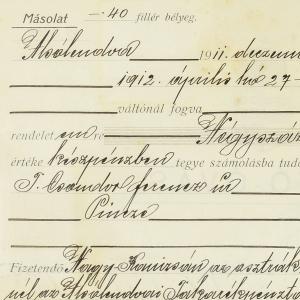 Másolat — 40 fillér bélyeg.
Alsólendva 1911. decem
1912. április hó 27-
váltónál fogva
rendelet em re Négyszáz
értéke készpénzben tegye számolásba tud
T. Csandor ferenc úr
Pincze
Fizetendő Nagy Kanizsán az osztrák
nél az Alsólendvai Takarékpénzt